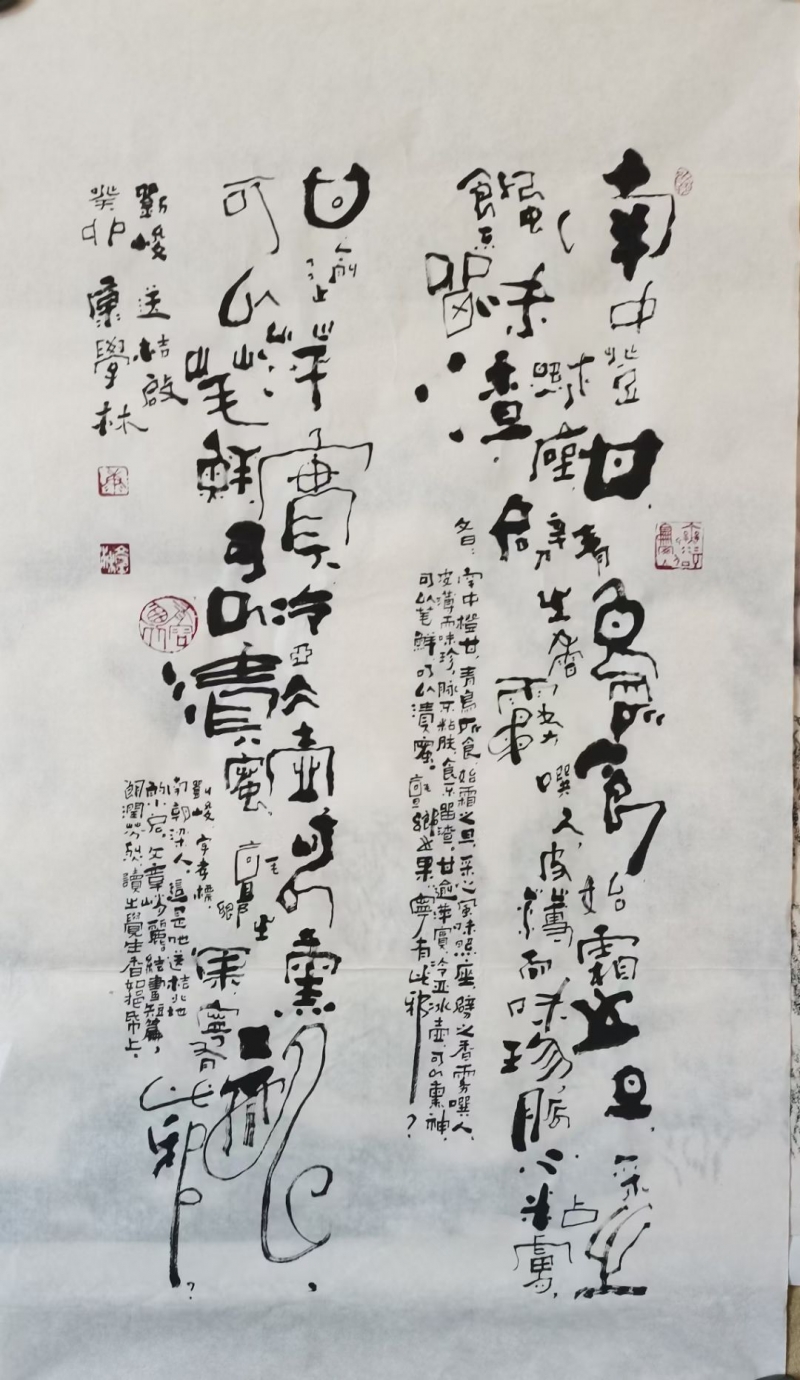 南中橙甘,青鳥所食始霜之旦,采之
風味照座,劈之香霧噀人,皮薄而味珍,脈不粘膚,
食不留渣。
南中橙甘,青鳥所食,始霜之旦,采之風味照座,劈之香雾噀人,
皮薄而味珍,脉不粘肤,食不留渣,甘逾萍實,冷亚冰壶,可以熏神,
可以芼鲜,可以漬蜜。氊鄉之果,寧有此邪?
甘逾萍實,冷亞冰壺,可以熏神,
可以芼鮮,可以漬蜜,氊鄉之果,寧有此邪?
劉峻,字孝標,
南朝梁人。這是他送桔北地
小启。文章峭麗,短篇,
潤芬烈,讀之覺生香紙上。
劉峻 送桔啟
癸卯 康學林